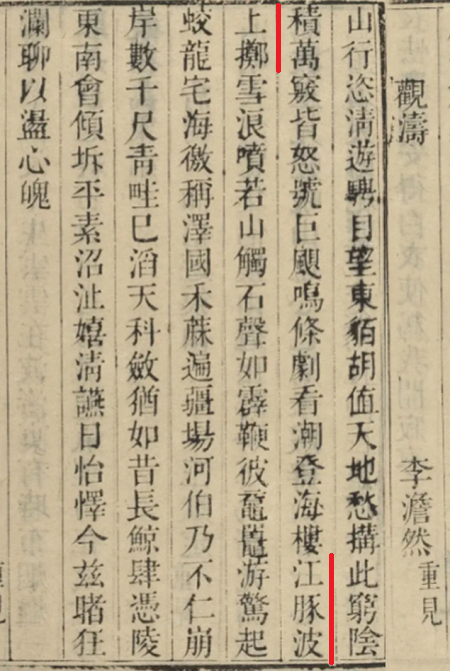 觀濤　李澹然 重見
山行恣淸遊騁目望東貊胡值天地愁搆此窮陰
積萬竅皆怒號巨颶鳴條劇看潮登海樓江豚波
上擲雪浪噴若山觸石聲如霹鞭彼黿鼉游驚起
蛟龍宅海徼稱澤國禾蔴遍疆場河伯乃不仁崩
岸數千尺靑畦已滔天科斂猶如昔長鯨肆憑陵
東南會傾坼平素沼沚嬉淸讌日怡懌今玆睹狂
瀾聊以盪心魄